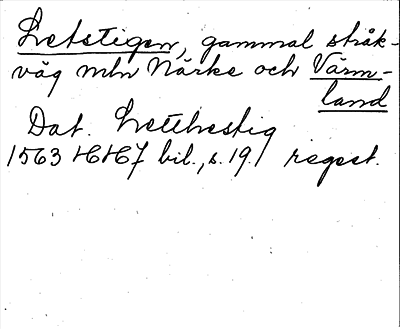 Letstigen, gammal stråk-
väg mln Närke och Värm-
land
Dat. Letthestig
1563 HH 7 bil., s. 19. regest.